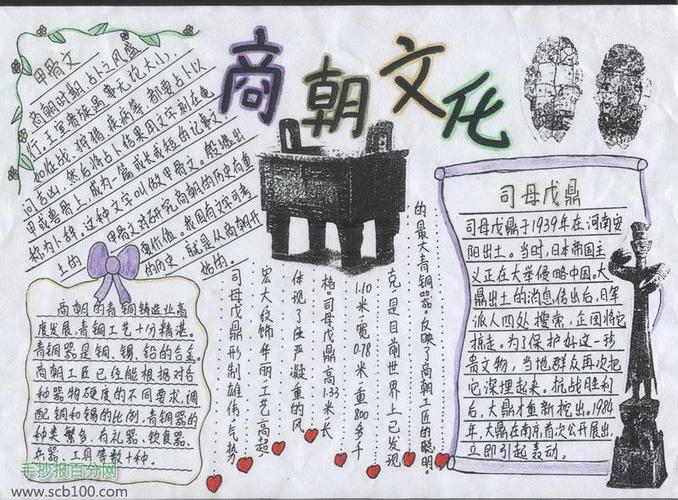 商朝文化
甲骨文
商朝时期,占卜之风盛
行,王室贵族遇事无论大小,
如征战、狩猎、疾病等,都要占卜以
问吉凶,然后将占卜结果用文字刻在龟
甲或兽骨上,成为一篇或长或短的记事文,
称为卜辞,这种文字叫做甲骨文。殷墟出
土的甲骨文对研究商朝的历史有重
要价值。我国有文字可考
的历史,就是从商朝开
始的。
商朝的青铜铸造业高
度发展,青铜工艺十分精湛。
青铜器是铜、锡、铅的合金。
商朝工匠已经能根据对各
种器物硬度的不同要求,调
配铜和锡的比例,青铜器的
种类繁多,有礼器、饮食器、
兵器、工具等数十种。
司母戊鼎形制雄伟,气势
宏大,纹饰华丽,工艺高超
体现了庄严凝重的风
格。司母戊鼎高1.33米、长
1.10米、宽0.78米、重800多千
克,是目前世界上已发现
的最大青铜器。反映了商朝工匠的聪明。
司母戊鼎
司母戊鼎于1939年在河南安
阳出土。当时,日本帝国主
义正在大举侵略中国。大
鼎出土的消息传出后,日军
派人四处搜索,企图将它
掠走。为了保护好这一珍
贵文物,当地群众再次把
它深埋起来。抗战胜利
后,大鼎才重新挖出。1984
年,大鼎在南京首次公开展出,
立即引起轰动。
手抄报百分网
www.scb100.com